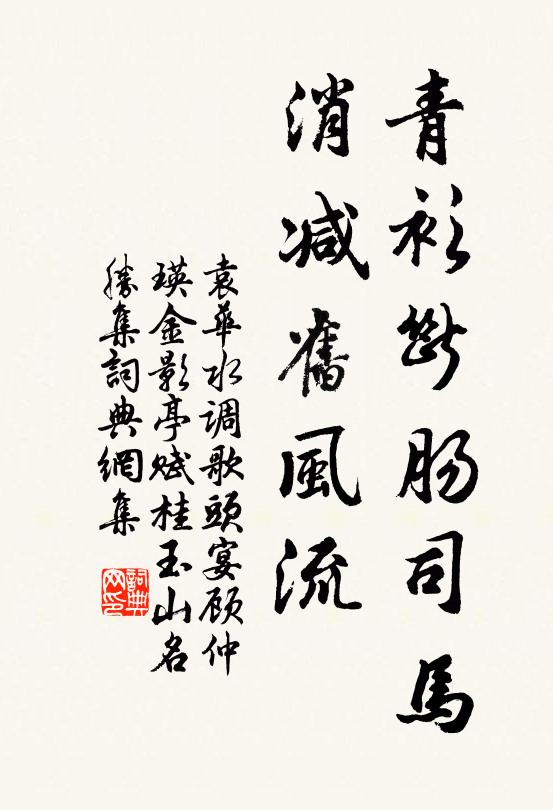 青衫斷肠司馬
消减舊風流
袁華水调歌頭宴顾仲
瑛金影亭赋桂玉山名
勝集詞典網集
詞典網印